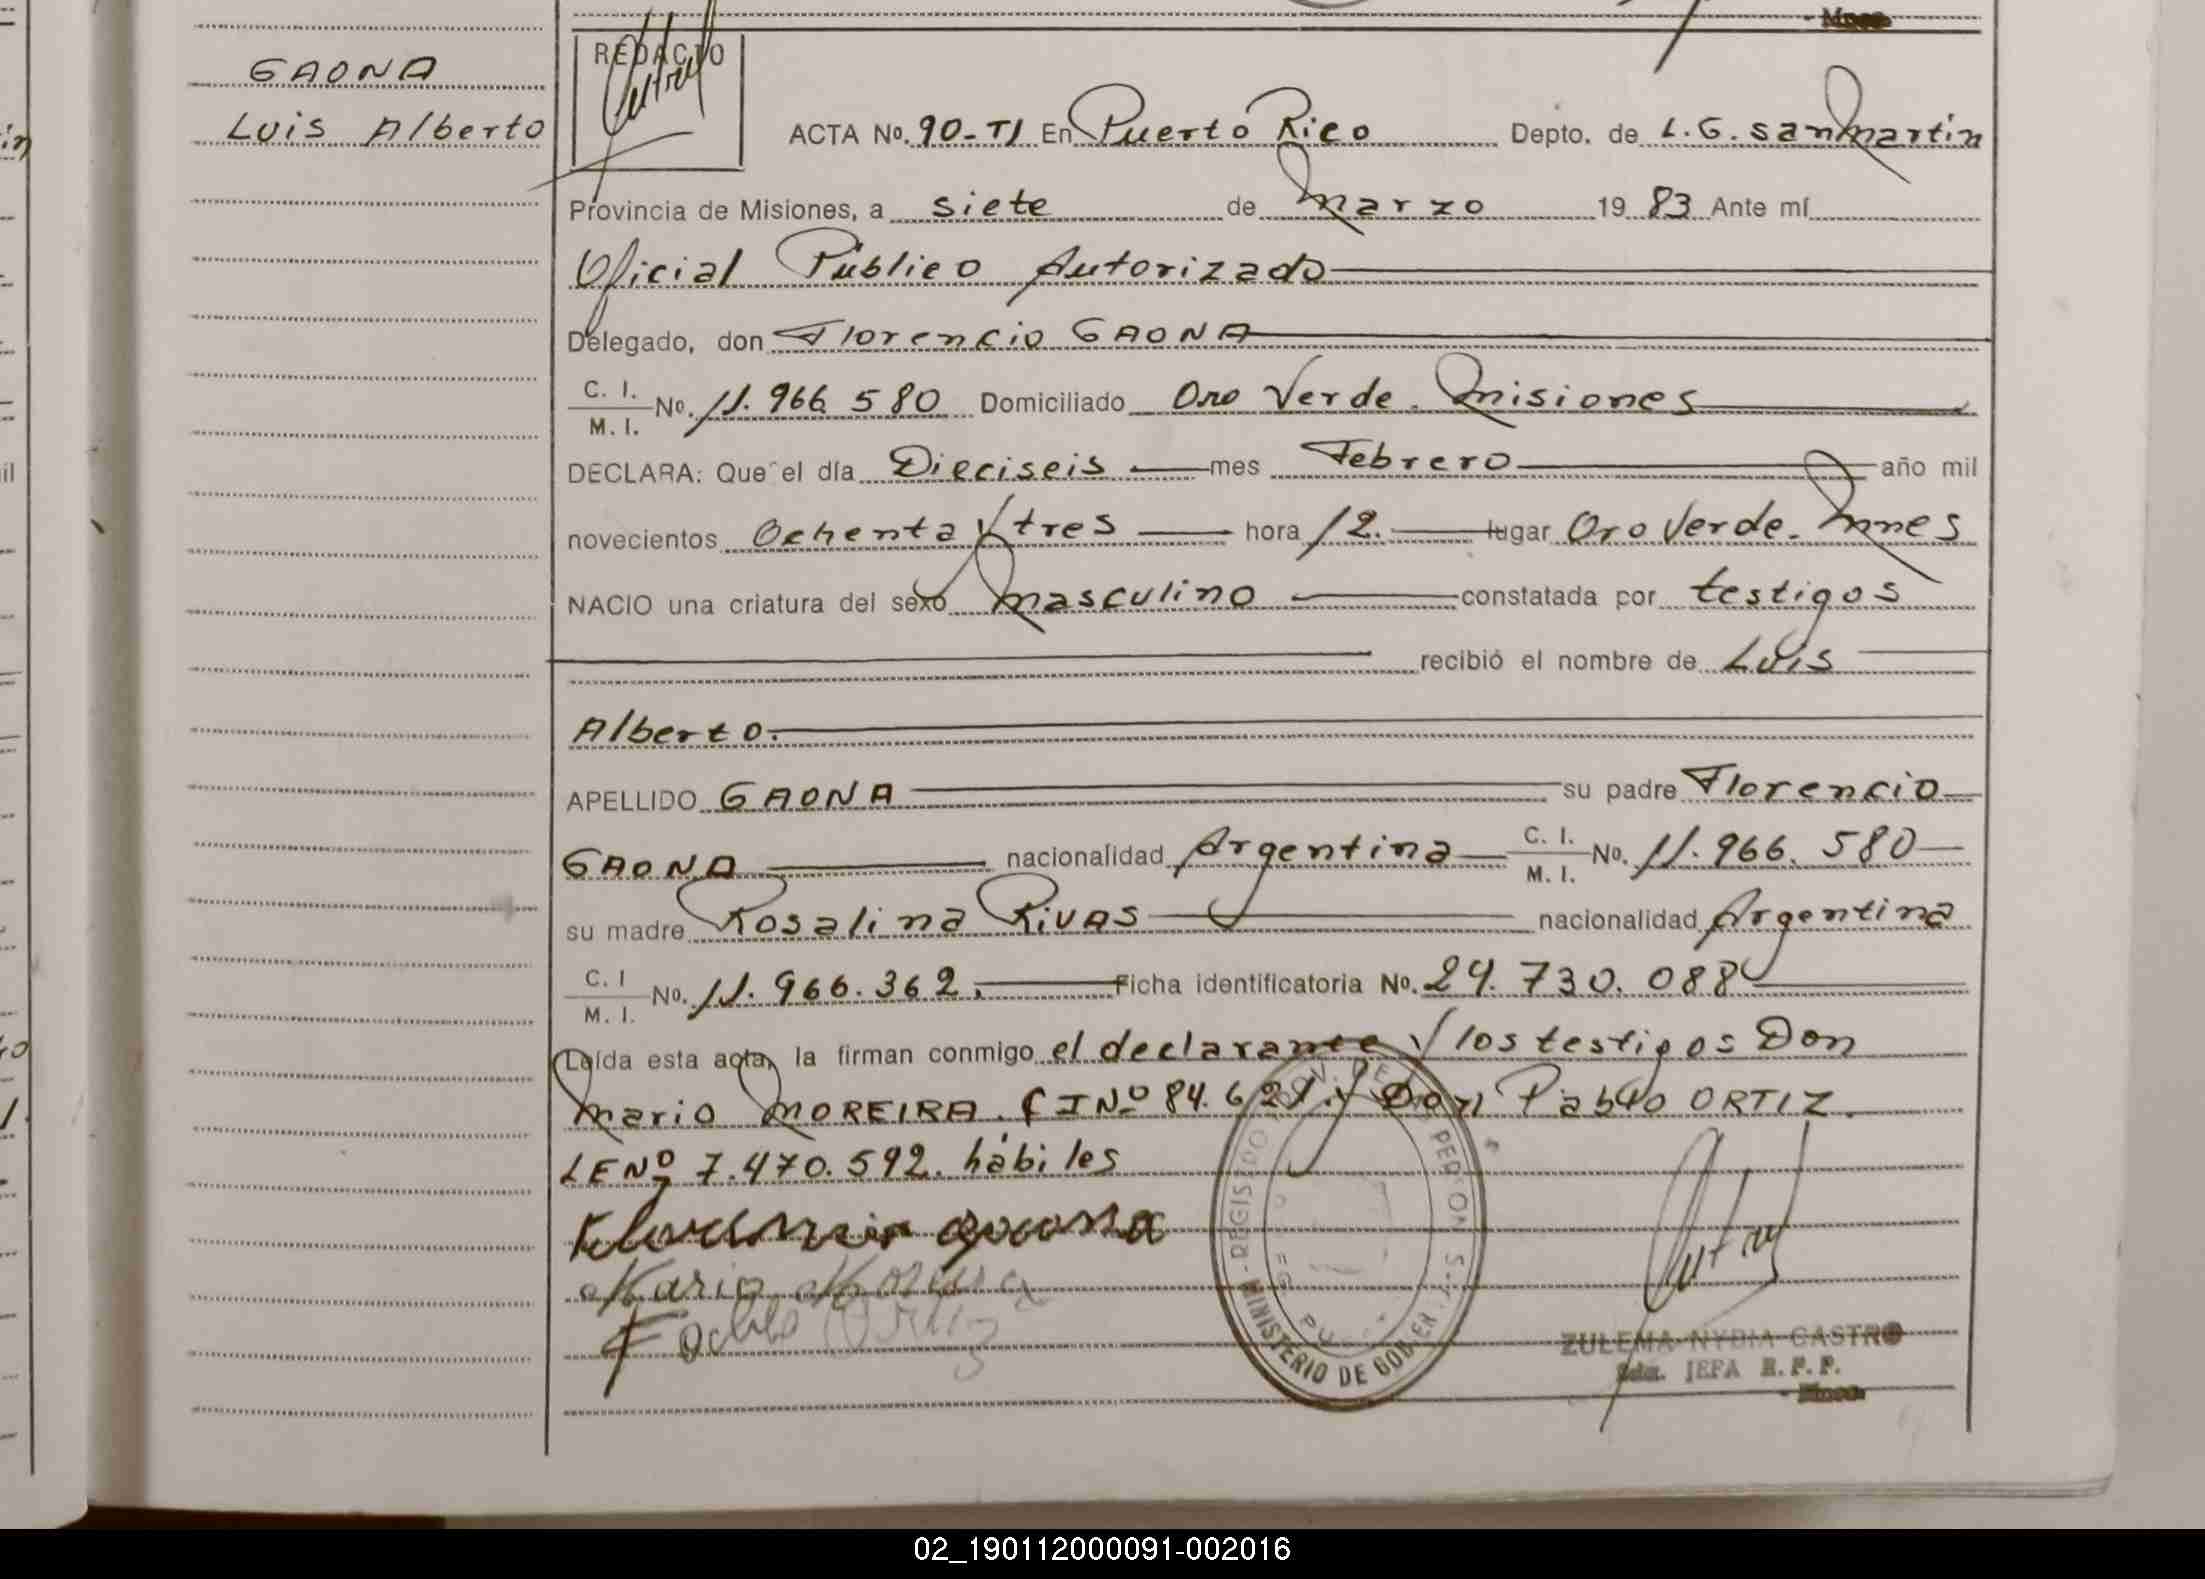 GAONA
Luis Alberto
REDACTO
ACTA No. 90-TI En Puerto Rico Depto. de L.G. San Martín
Provincia de Misiones, a siete de Marzo 19 83 Ante mí
Oficial Público Autorizado
Delegado, don Florencio GAONA
C. I. M. I. No. 11.966.580 Domiciliado Oro Verde. Misiones
DECLARA: Que el día Dieciseis mes Febrero año mil
novecientos Ochenta y tres hora 12. lugar Oro Verde. Mnes
NACIO una criatura del sexo Masculino constatada por testigos
recibió el nombre de Luis
Alberto.
APELLIDO GAONA su padre Florencio
GAONA nacionalidad Argentina C. I. M. I. No. 11.966.580
su madre Rosalina Rivas nacionalidad Argentina
C. I M. I. No. 11.966.362. Ficha identificatoria No. 29.730.088
Leída esta acta, la firman conmigo el declarante y los testigos Don
Mario MOREIRA. CI Nº 84.621. y Don Pablo ORTIZ.
LE Nº 7.470.592. hábiles
Mario Moreira
Pablo Ortiz
MINISTERIO DE GOB.
ZULEMA NYDIA CASTRO
JEFA R.P.P.
02_190112000091-002016